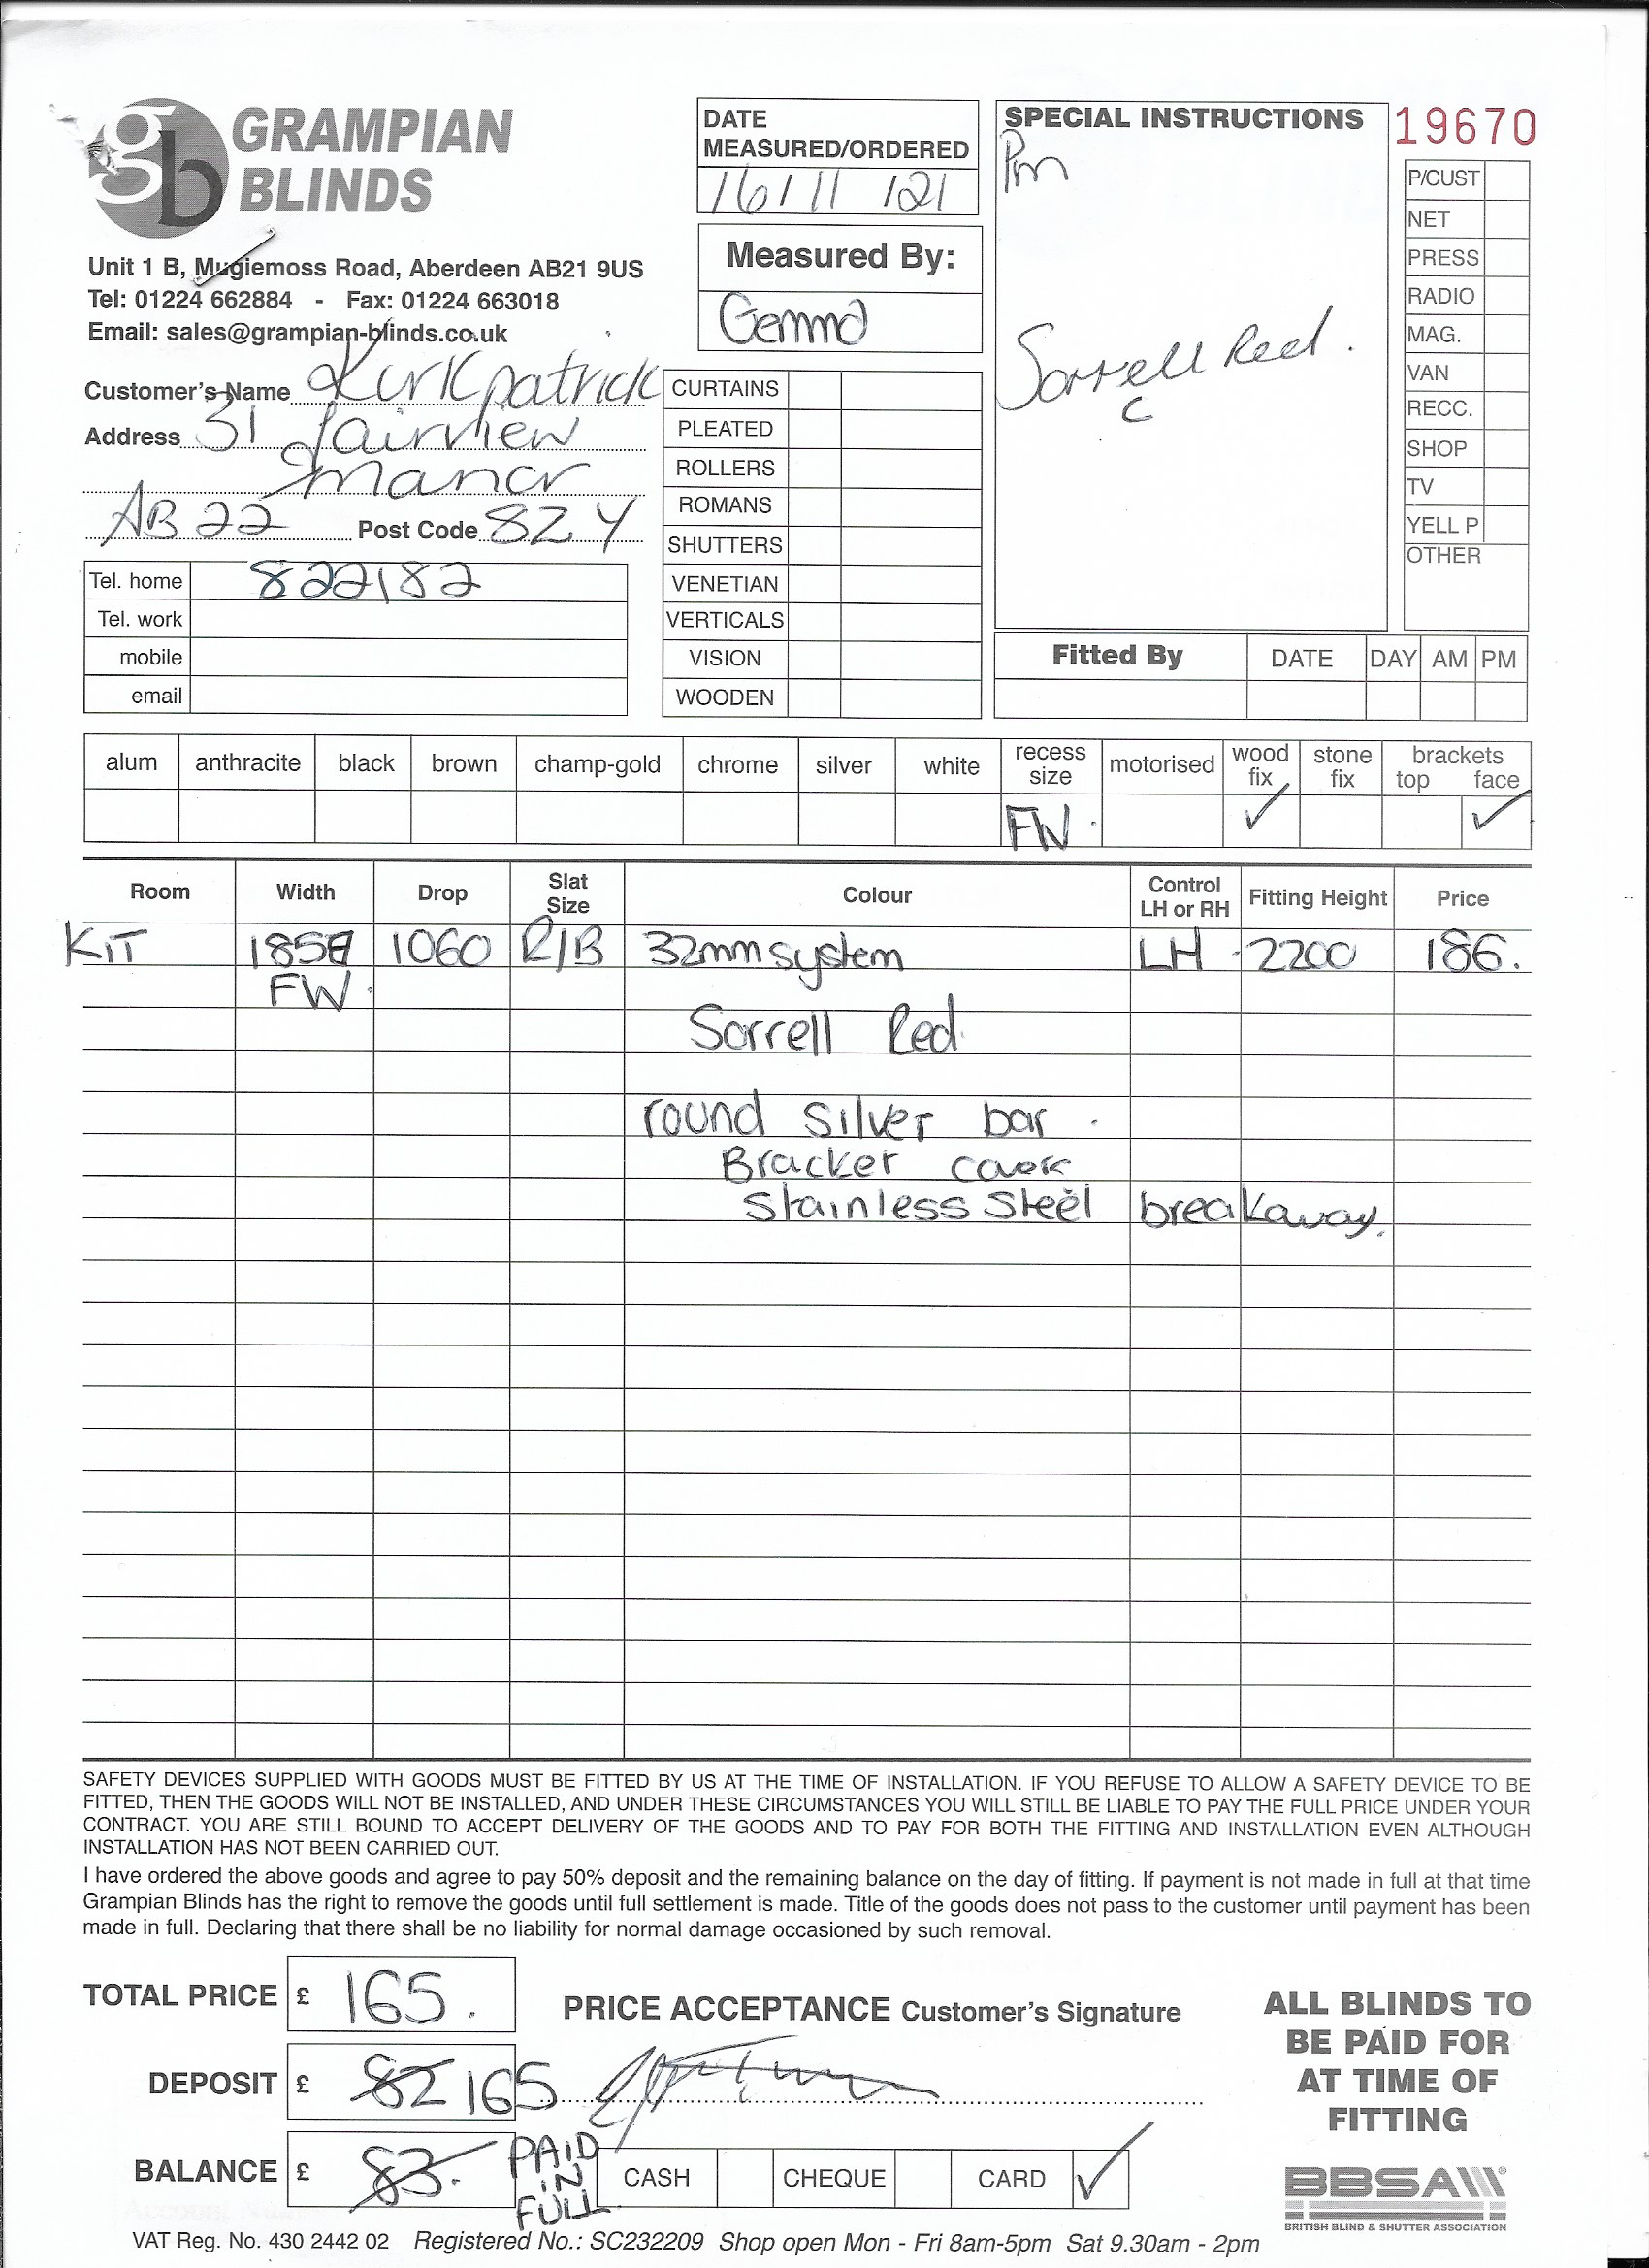 gb GRAMPIAN BLINDS
Unit 1 B, Mugiemoss Road, Aberdeen AB21 9US
Tel: 01224 662884 - Fax: 01224 663018
Email: sales@grampian-blinds.co.uk
Customer's Name Kirkpatrick
Address 31 Fairview
Manor
AB22 Post Code 8ZY
Tel. home 822182
Tel. work
mobile
email
DATE
MEASURED/ORDERED
16/11/21
Measured By:
Gemma
CURTAINS
PLEATED
ROLLERS
ROMANS
SHUTTERS
VENETIAN
VERTICALS
VISION
WOODEN
SPECIAL INSTRUCTIONS
Pm
Sorrell Red.
C
19670
P/CUST
NET
PRESS
RADIO
MAG.
VAN
RECC.
SHOP
TV
YELL P
OTHER
Fitted By DATE DAY AM PM
alum anthracite black brown champ-gold chrome silver white recess size motorised wood fix stone fix brackets top face
FW. ✓ ✓
Room Width Drop Slat Size Colour Control LH or RH Fitting Height Price
KIT 1060 R/B 32mm system LH 2200 186.
FW.
Sorrell Red
round silver bar.
Bracket
Stainless Steel breakaway.
SAFETY DEVICES SUPPLIED WITH GOODS MUST BE FITTED BY US AT THE TIME OF INSTALLATION. IF YOU REFUSE TO ALLOW A SAFETY DEVICE TO BE
FITTED, THEN THE GOODS WILL NOT BE INSTALLED, AND UNDER THESE CIRCUMSTANCES YOU WILL STILL BE LIABLE TO PAY THE FULL PRICE UNDER YOUR
CONTRACT. YOU ARE STILL BOUND TO ACCEPT DELIVERY OF THE GOODS AND TO PAY FOR BOTH THE FITTING AND INSTALLATION EVEN ALTHOUGH
INSTALLATION HAS NOT BEEN CARRIED OUT.
I have ordered the above goods and agree to pay 50% deposit and the remaining balance on the day of fitting. If payment is not made in full at that time
Grampian Blinds has the right to remove the goods until full settlement is made. Title of the goods does not pass to the customer until payment has been
made in full. Declaring that there shall be no liability for normal damage occasioned by such removal.
TOTAL PRICE £ 165.
PRICE ACCEPTANCE Customer's Signature
DEPOSIT £ 82 165
BALANCE £ 83.
PAID
IN
FULL
CASH CHEQUE CARD ✓
ALL BLINDS TO
BE PAID FOR
AT TIME OF
FITTING
BBSA
BRITISH BLIND & SHUTTER ASSOCIATION
VAT Reg. No. 430 2442 02 Registered No.: SC232209 Shop open Mon - Fri 8am-5pm Sat 9.30am - 2pm